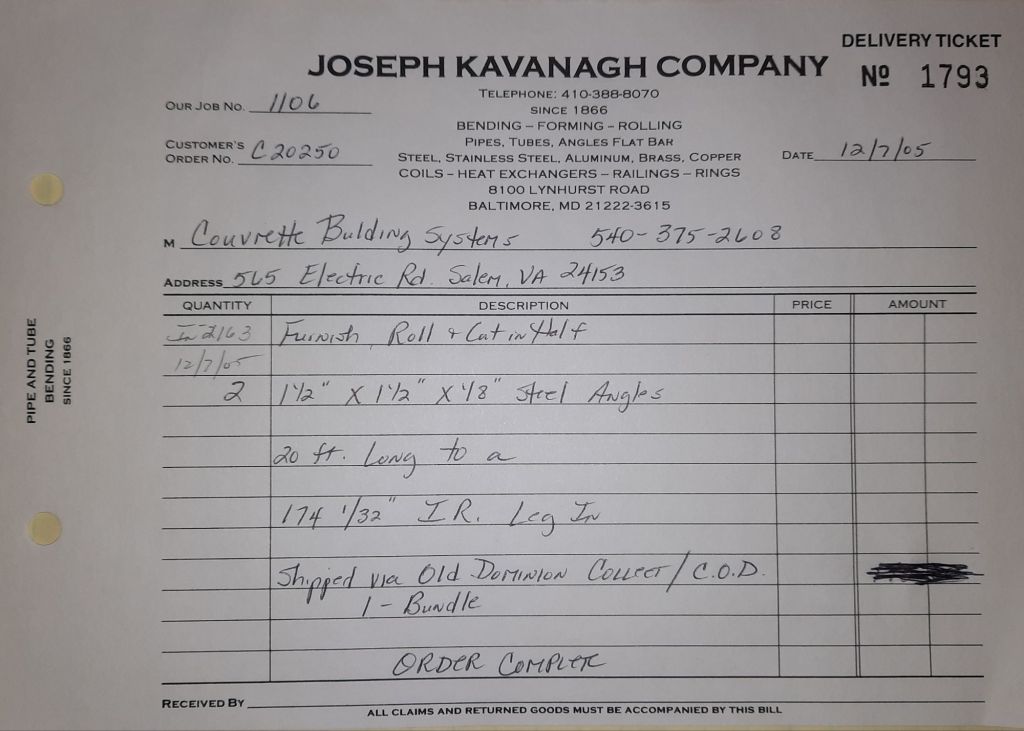 DELIVERY TICKET
JOSEPH KAVANAGH COMPANY
Nº 1793
TELEPHONE: 410-388-8070
OUR JOB NO. 1106
SINCE 1866
BENDING – FORMING – ROLLING
PIPES, TUBES, ANGLES FLAT BAR
CUSTOMER'S ORDER NO. C20250
STEEL, STAINLESS STEEL, ALUMINUM, BRASS, COPPER
DATE 12/7/05
COILS – HEAT EXCHANGERS – RAILINGS – RINGS
8100 LYNHURST ROAD
BALTIMORE, MD 21222-3615
M Couvrette Bulding Systems 540-375-2608
ADDRESS 565 Electric Rd. Salem, VA 24153
QUANTITY DESCRIPTION PRICE AMOUNT
In 2163 Furnish, Roll + Cut in Half
12/7/05
2 1 1/2" X 1 1/2" X 1/8" Steel Angles
20 ft. Long to a
174 1/32" I.R. Leg In
Shipped via Old Dominion Collect / C.O.D.
1 - Bundle
ORDER COMPLETE
RECEIVED BY
ALL CLAIMS AND RETURNED GOODS MUST BE ACCOMPANIED BY THIS BILL
PIPE AND TUBE
BENDING
SINCE 1866